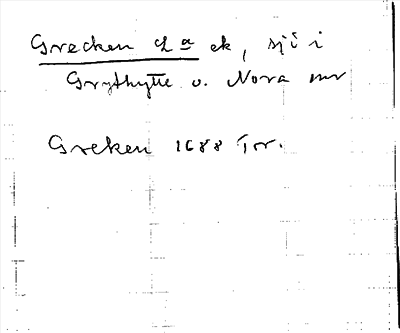 Grecken ek, sjö i
Grythytte o. Nora snr
Greken 1688 Tr.